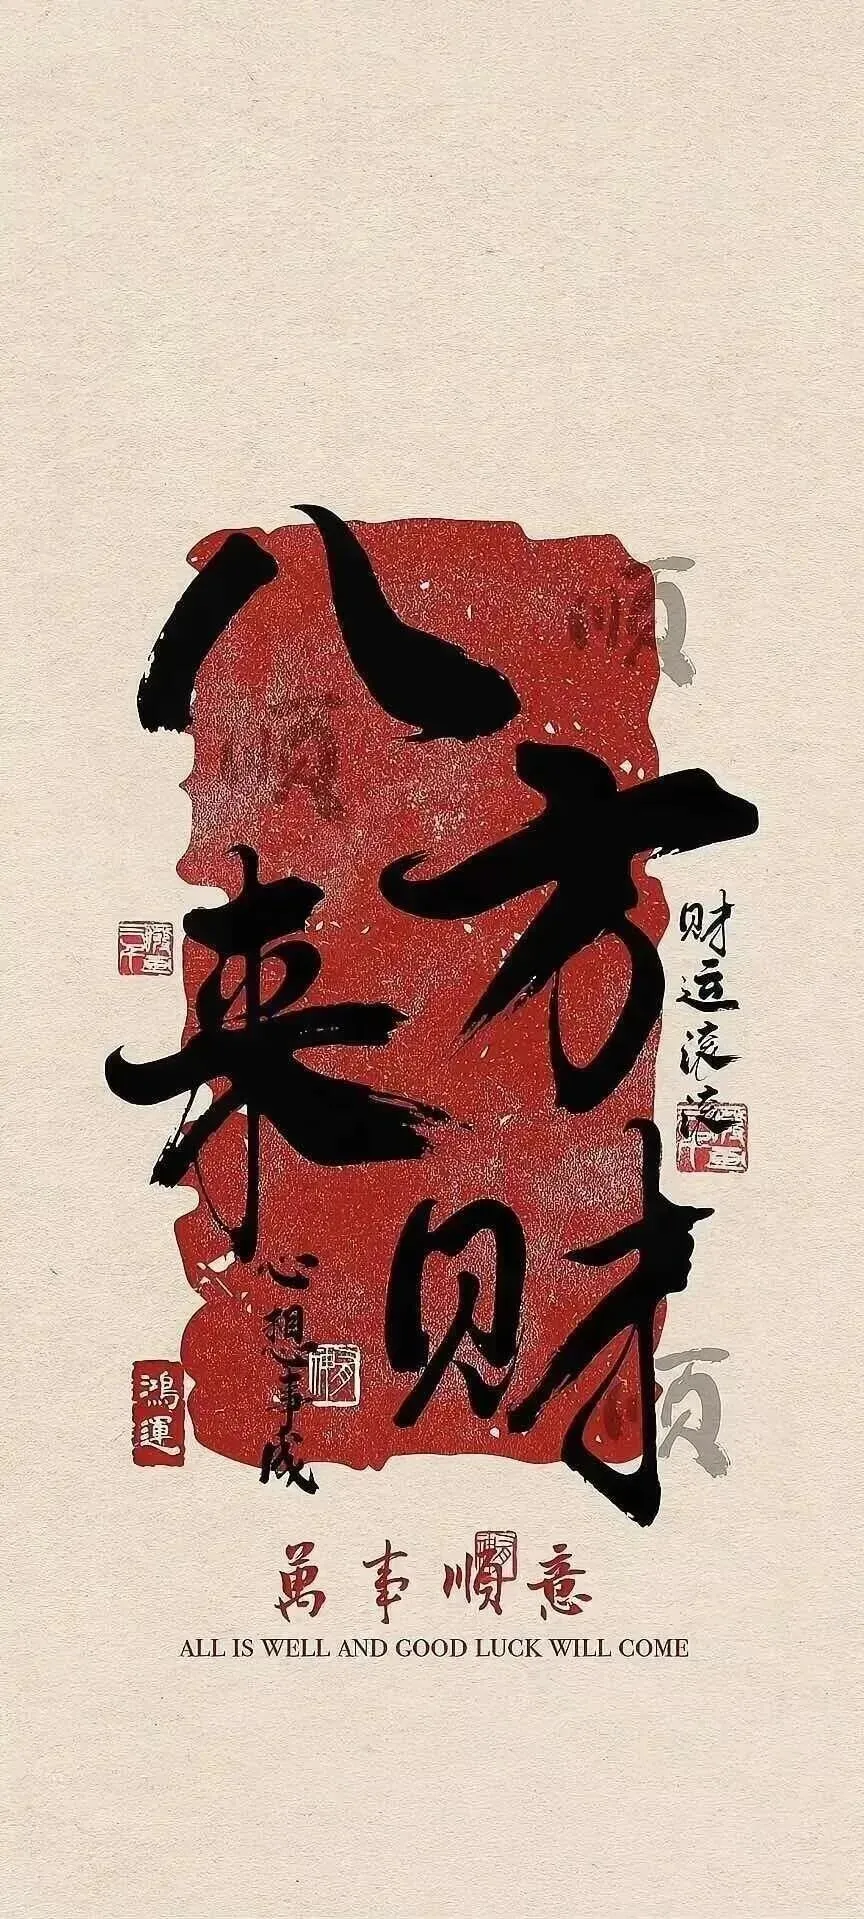 八方来财
顺
顺
财运滚滚
心想事成
鸿運
顺
萬事順意
ALL IS WELL AND GOOD LUCK WILL COME